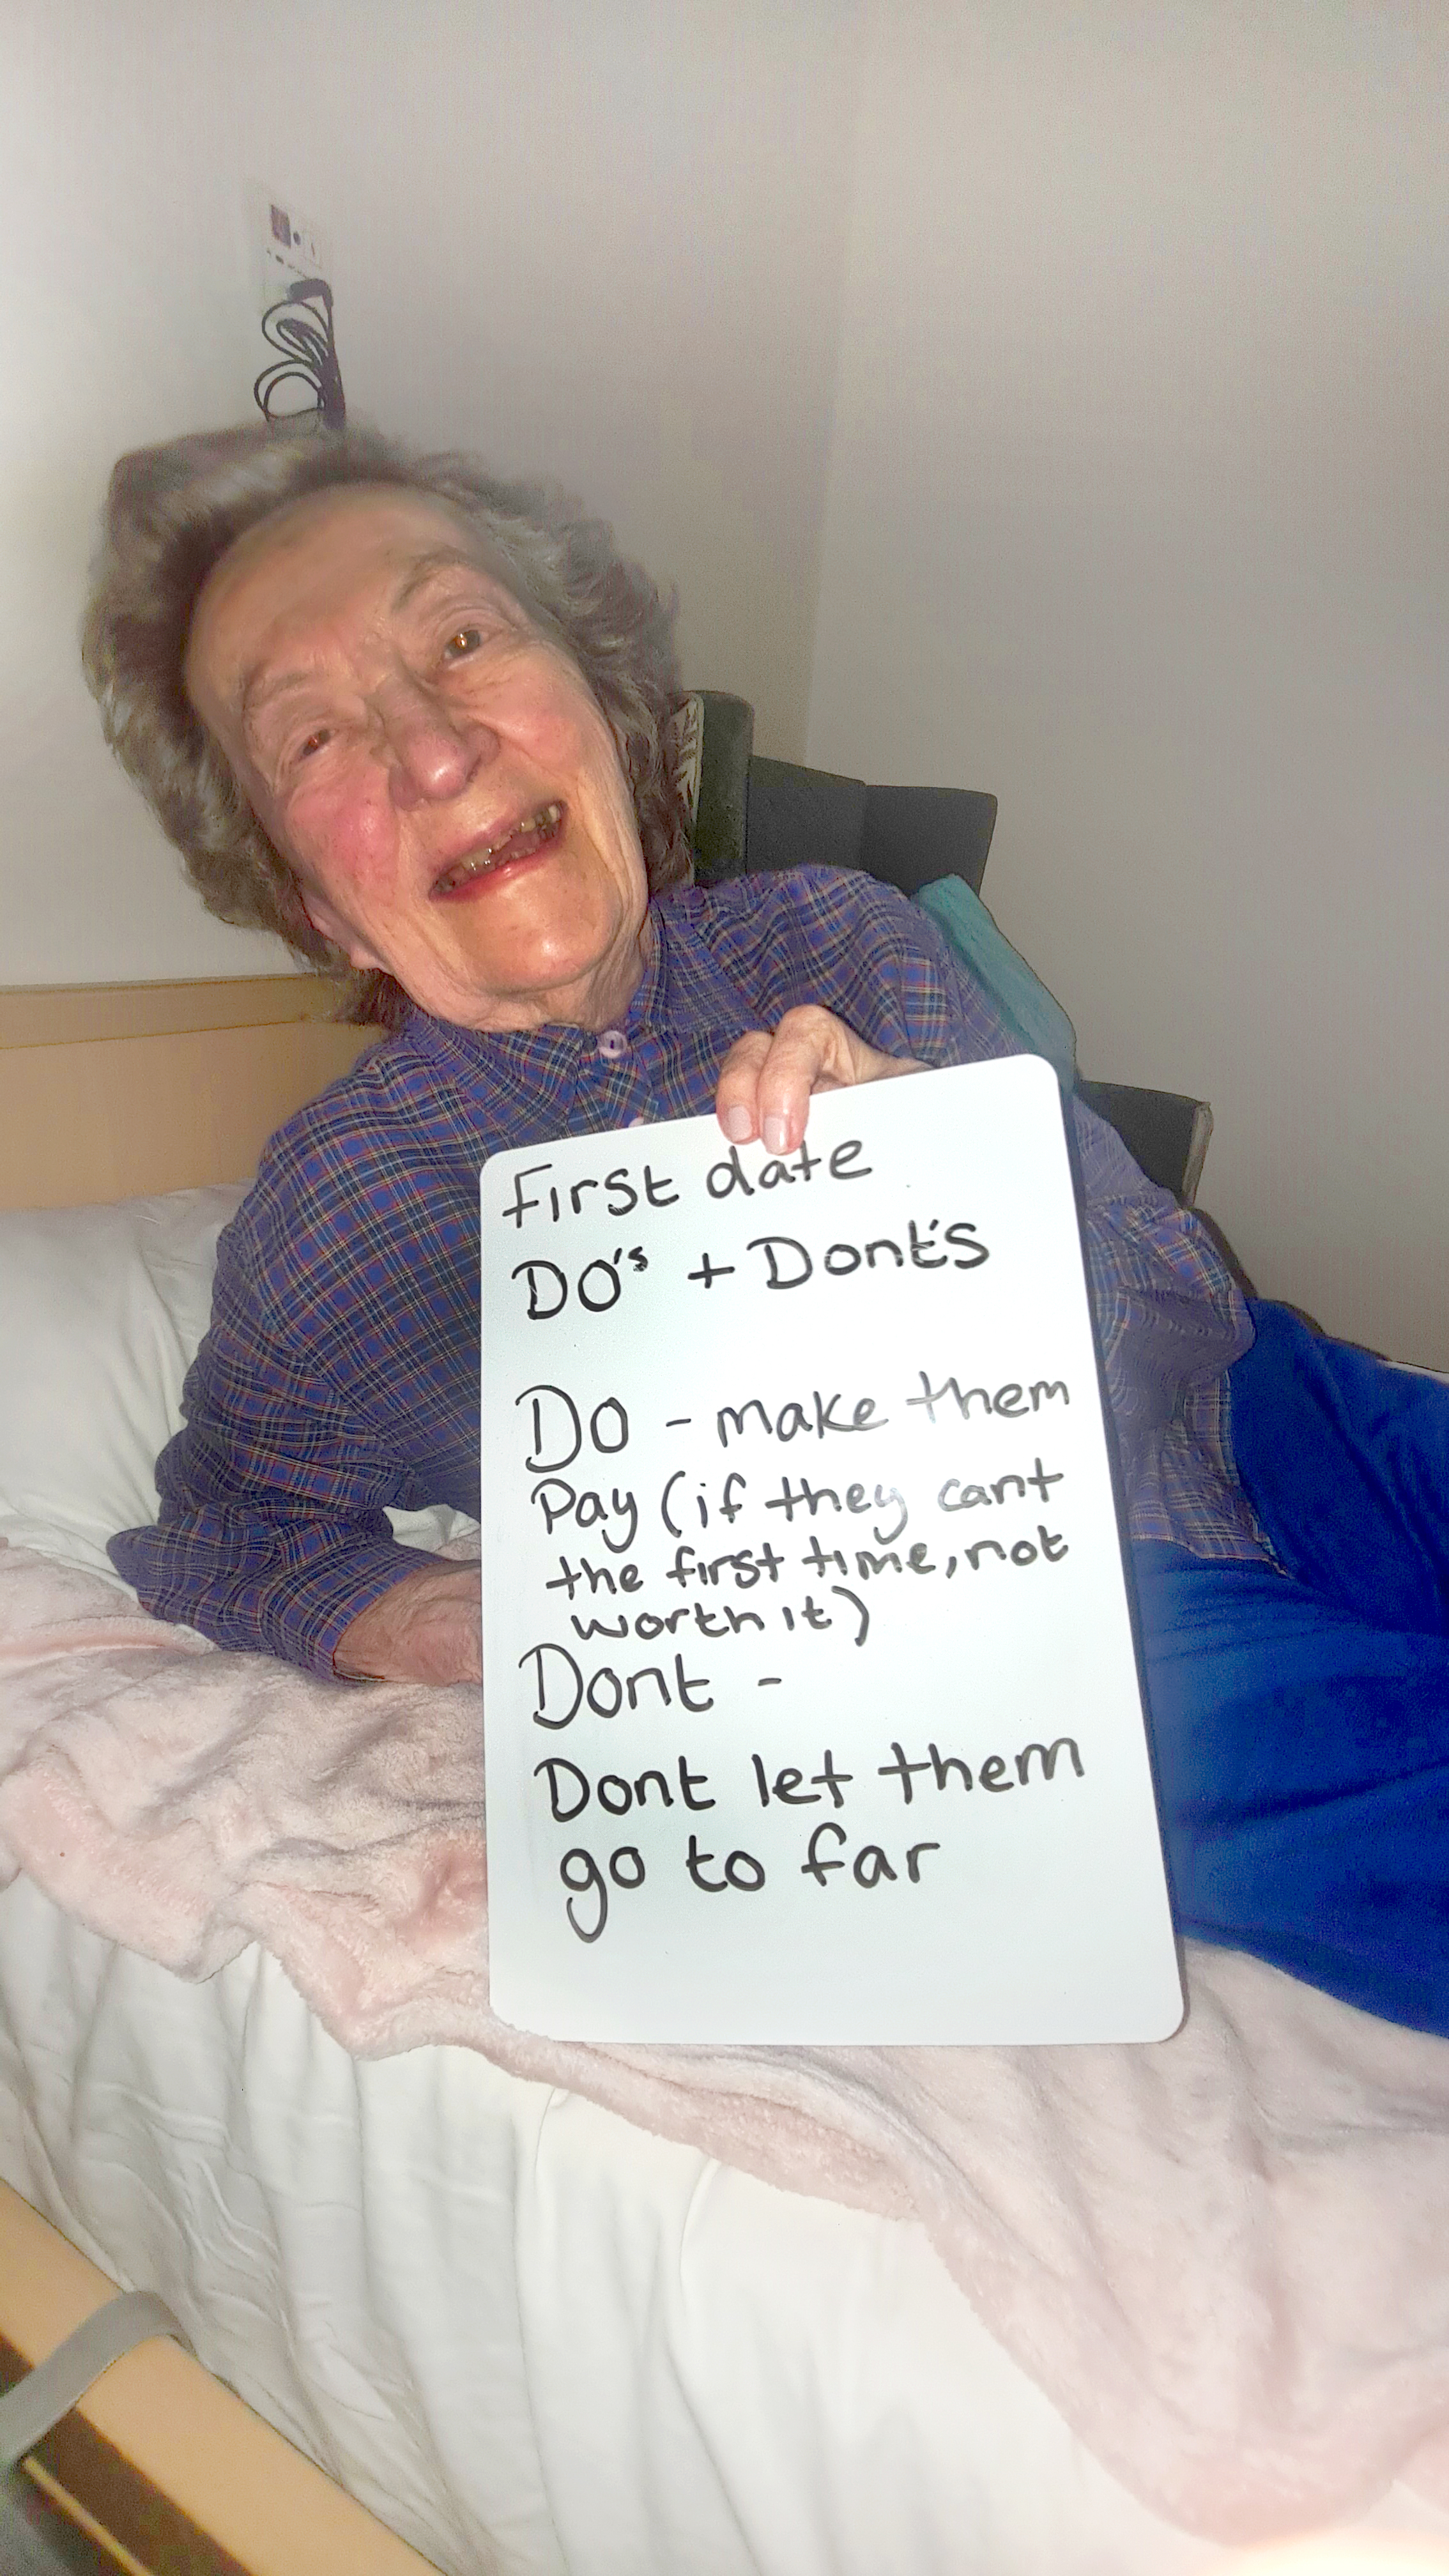 First date
DO's + Dont's
DO - make them
Pay (if they cant
the first time, not
worth it)
Dont -
Dont let them
go to far